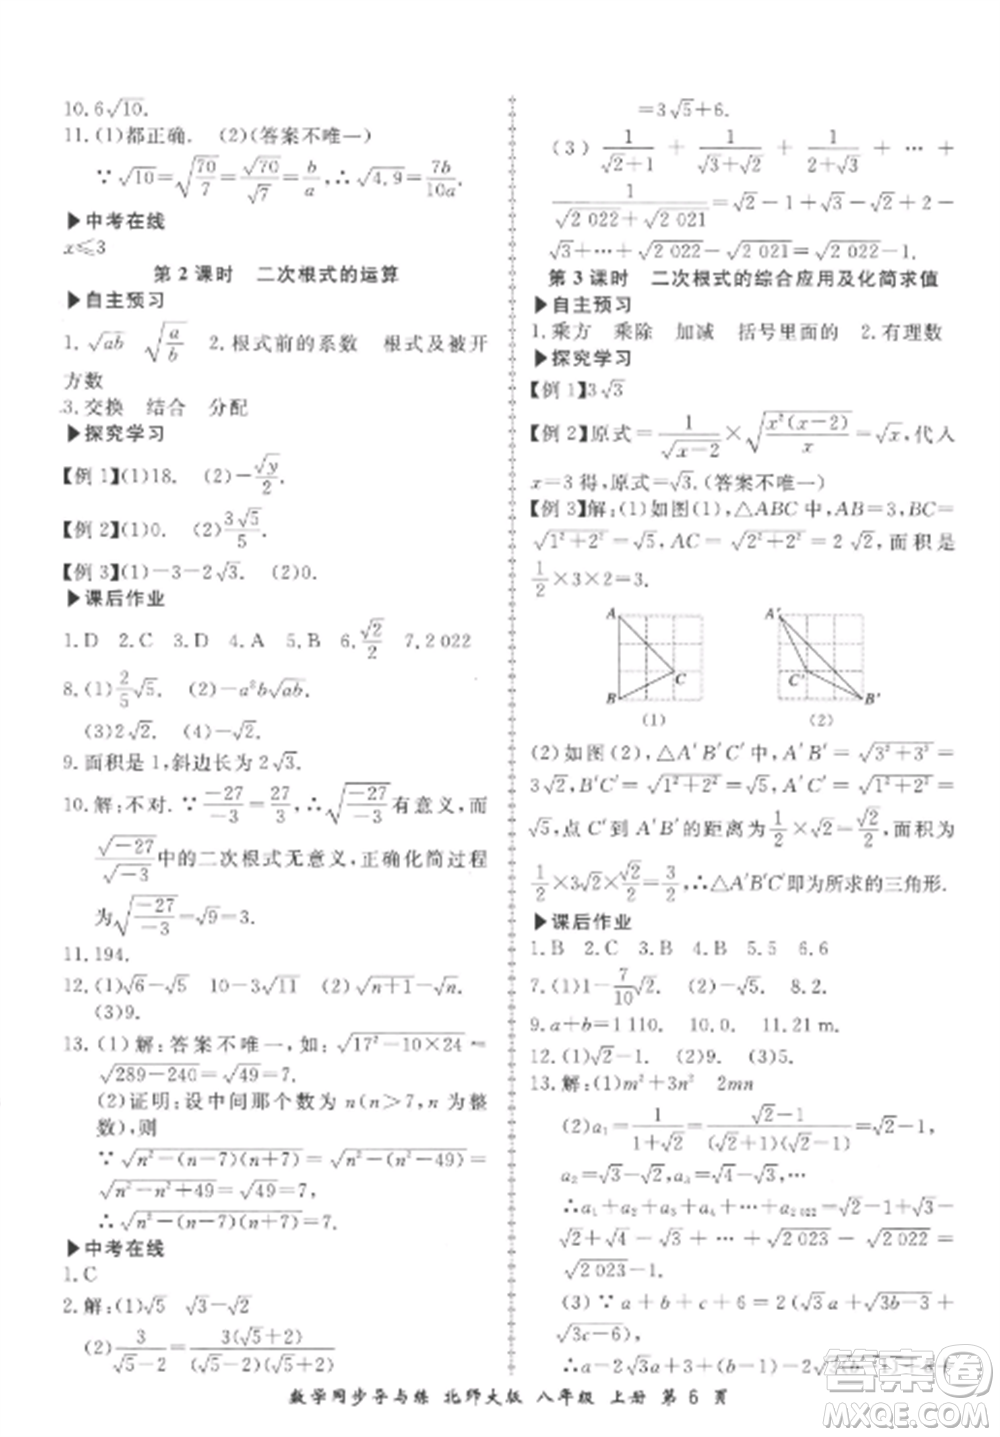 10. 6√10.
11. (1)都正确. (2)(答案不唯一)
∵√10=√(70/7)=√70/√7=b/a,∴√4.9=7b/10a.
▶中考在线
x≤3
第 2 课时 二次根式的运算
▶自主预习
1. √ab √(a/b) 2. 根式前的系数 根式及被开
方数
3. 交换 结合 分配
▶探究学习
【例 1】(1)18. (2)-√y/2.
【例 2】(1)0. (2)3√5/5.
【例 3】(1)-3-2√3. (2)0.
▶课后作业
1. D 2. C 3. D 4. A 5. B 6. √2/2 7. 2 022
8. (1)2/5√5. (2)-a²b√ab.
(3)2√2. (4)-√2.
9. 面积是 1,斜边长为 2√3.
10. 解:不对. ∵-27/-3=27/3,∴√(-27/-3)有意义,而
√-27/√-3中的二次根式无意义,正确化简过程
为√(-27/-3)=√9=3.
11. 194.
12. (1)√6-√5 10-3√11 (2)√(n+1)-√n.
(3)9.
13. (1)解:答案不唯一,如:√(17²-10×24)=
√(289-240)=√49=7.
(2)证明:设中间那个数为 n(n>7,n 为整
数),则
∵√(n²-(n-7)(n+7))=√(n²-(n²-49))=
√(n²-n²+49)=√49=7,
∴√(n²-(n-7)(n+7))=7.
▶中考在线
1. C
2. 解:(1)√5 √3-√2
(2)3/(√5-2)=3(√5+2)/((√5-2)(√5+2))
=3√5+6.
(3) 1/(√2+1) + 1/(√3+√2) + 1/(2+√3) + … +
1/(√2 022+√2 021)=√2-1+√3-√2+2-
√3+…+√2 022-√2 021=√2 022-1.
第 3 课时 二次根式的综合应用及化简求值
▶自主预习
1. 乘方 乘除 加减 括号里面的 2. 有理数
▶探究学习
【例 1】3√3
【例 2】原式=1/√(x-2)×√(x²(x-2)/x)=√x,代入
x=3 得,原式=√3.(答案不唯一)
【例 3】解:(1)如图(1),△ABC 中,AB=3,BC=
√(1²+2²)=√5,AC=√(2²+2²)=2√2,面积是
1/2×3×2=3.
A B C A′ C′ B′
(1) (2)
(2)如图(2),△A′B′C′中,A′B′=√(3²+3²)=
3√2,B′C′=√(1²+2²)=√5,A′C′=√(1²+2²)=
√5,点 C′到 A′B′的距离为1/2×√2=√2/2,面积为
1/2×3√2×√2/2=3/2,∴△A′B′C′即为所求的三角形.
▶课后作业
1. B 2. C 3. B 4. B 5. 5 6. 6
7. (1)1-7/10√2. (2)-√2. 8. 2.
9. a+b=1 110. 10. 0. 11. 21 m.
12. (1)√2-1. (2)9. (3)5.
13. 解:(1)m²+3n² 2mn
(2)a₁=1/(1+√2)=(√2-1)/((√2+1)(√2-1))=√2-1,
a₂=√3-√2,a₃=√4-√3,…
∴a₁+a₂+a₃+…+a₂ ₀₂₂=√2-1+√3-
√2+√4-√3+…+√2 023-√2 022=
√2 023-1.
(3)∵a+b+c+6=2(√a+√(3b-3)+
√(3c-6)),
∴a-2√a+1+b-2√3·√(b-1)+2+c-
数学同步导与练 北师大版 八年级 上册 第 6 页
答案圈
MXQE.COM